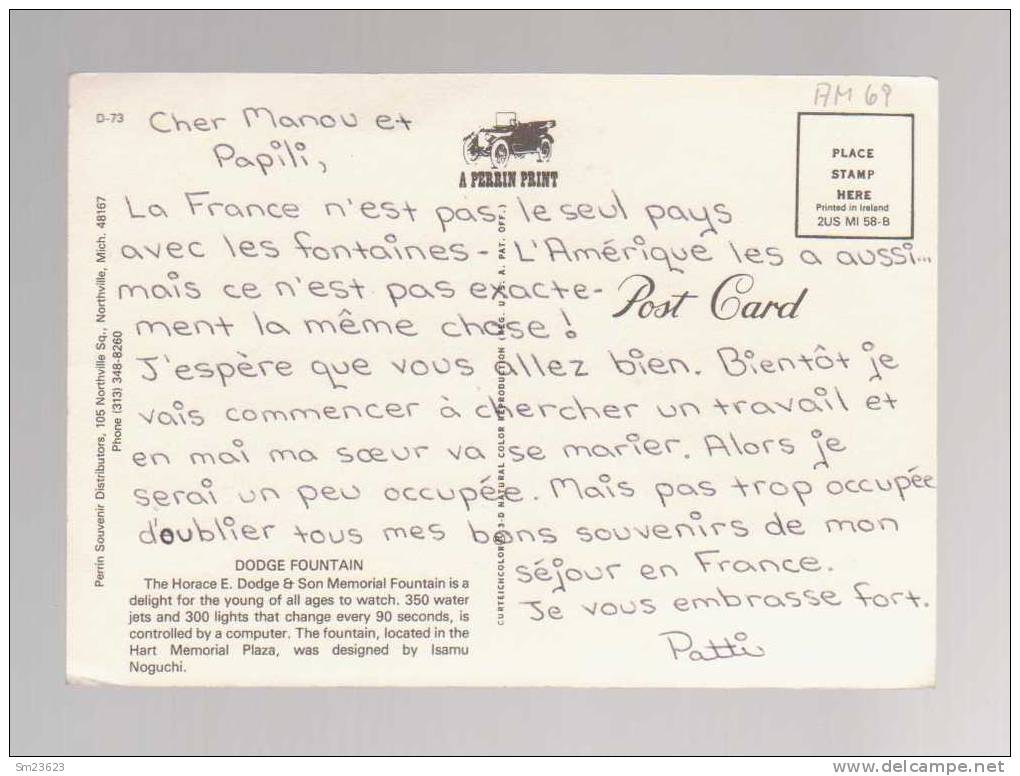 AM 69
D-73
Cher Manou et
Papili,
A PERRIN PRINT
PLACE
STAMP
HERE
Printed in Ireland
2US MI 58-B
La France n'est pas le seul pays
avec les fontaines - L'Amérique les a aussi...
mais ce n'est pas exacte-
Post Card
ment la même chose!
J'espère que vous allez bien. Bientôt je
vais commencer à chercher un travail et
en mai ma sœur va se marier. Alors je
serai un peu occupée. Mais pas trop occupée
d'oublier tous mes bons souvenirs de mon
séjour en France.
Je vous embrasse fort.
Patti
DODGE FOUNTAIN
The Horace E. Dodge & Son Memorial Fountain is a
delight for the young of all ages to watch. 350 water
jets and 300 lights that change every 90 seconds, is
controlled by a computer. The fountain, located in the
Hart Memorial Plaza, was designed by Isamu
Noguchi.
Perrin Souvenir Distributors, 105 Northville Sq., Northville, Mich. 48167
Phone (313) 348-8260
CURTEICHCOLOR® 3-D NATURAL COLOR REPRODUCTION (REG. U.S.A. PAT. OFF.)
Sm23623
www.delcampe.net